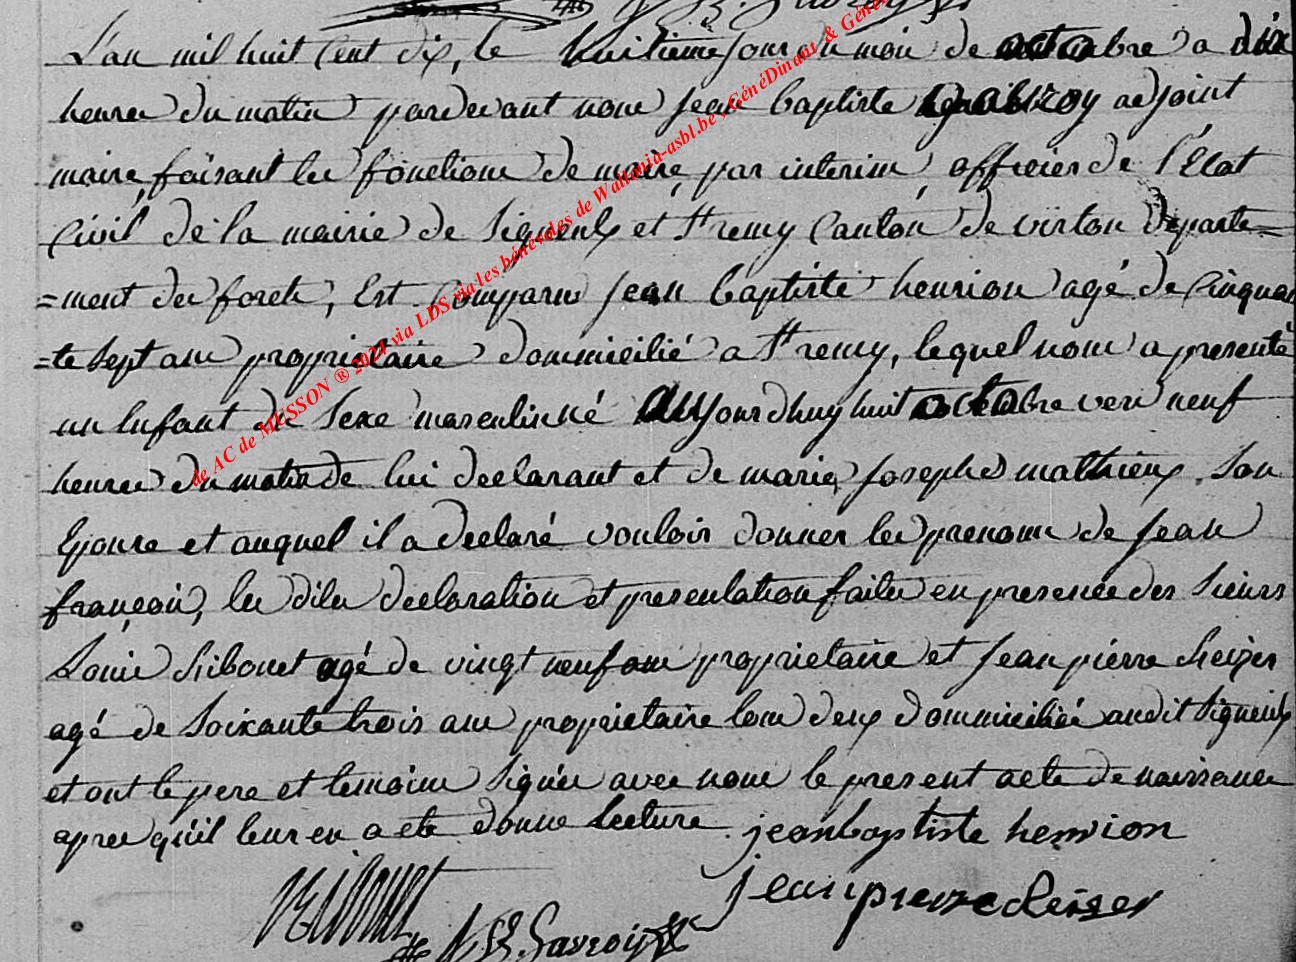 L'an mil huit Cent dix, le huitieme jour du mois de octobre a dix
heures du matin pardevant nous jean baptiste gavroy adjoint
maire, faisant les fonctions de maire, par interim, officier de l'État
Civil de la mairie de Signeulx et St remy Canton de virton Departe=
=ment des forets, Est Comparu jean baptiste henrion agé de Cinquan
=te sept ans proprietaire dommicilié a St remy, lequel nous a presenté
un Enfant de Sexe masculin né aujourdhuy huit octobre vers neuf
heures du matin de lui declarant et de marie, josephe mathieux, son
Epouse et auquel il a declaré vouloir donner les prenoms de jean
françois, les dites declaration et presentation faites en presence des Sieurs
Louis Ribouet agé de vingt neuf ans proprietaire et jean pierre Reizer
agé de Soixante trois ans proprietaire tous deux dommiciliés audit Signeulx
et ont le pere et temoins Signés avec nous le present acte de naissance
apres qu'il leur en a été donné Lecture. jean baptiste henrion
jean pierre Reiser
J B. Gavroy
de AC de MUSSON ® 2021 via LDS via les bénévoles de Wallonia-asbl.be, GénéDinant &